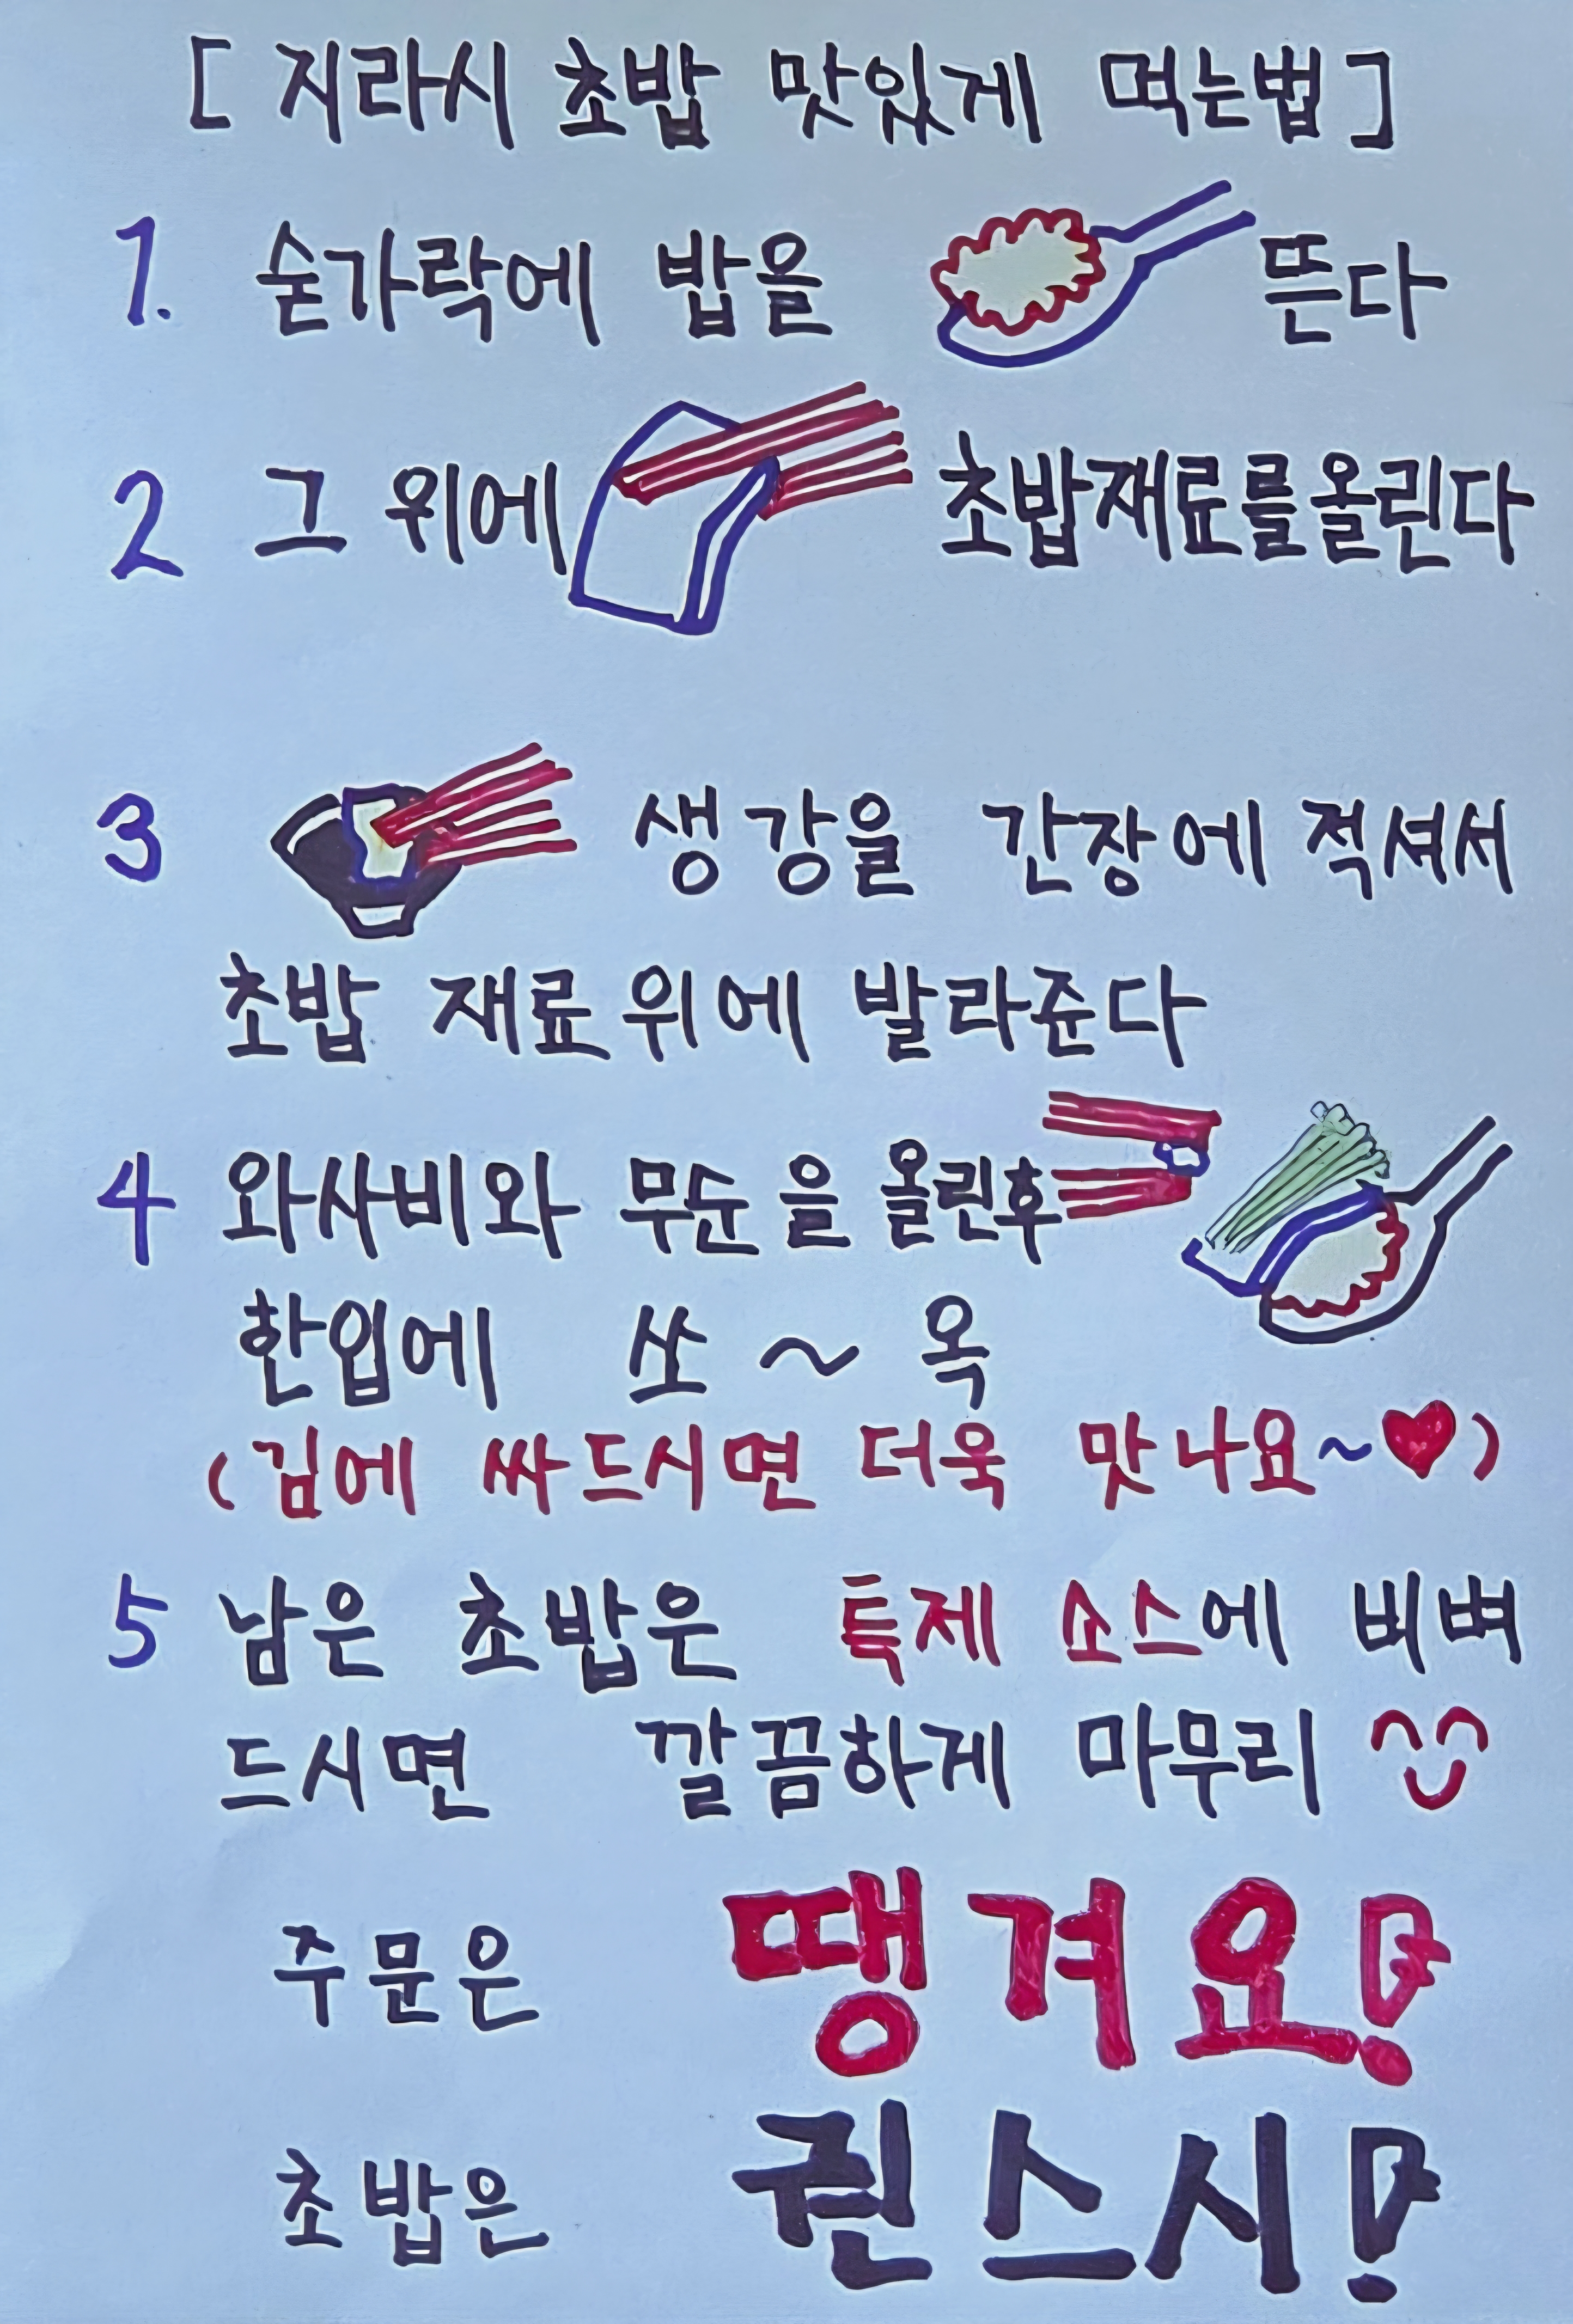 [ 지라시 초밥 맛있게 먹는법 ]
1. 숟가락에 밥을 뜬다
2 그 위에 초밥재료를올린다
3 생강을 간장에 적셔서
초밥 재료위에 발라쥰다
4 와사비와 무순을 올린후
한입에 쏘~옥
(김에 싸드시면 더욱 맛나요~♥)
5 남은 초밥은 특제 소스에 비벼
드시면 깔끔하게 마무리 ^^
주문은 땡겨요!
초밥은 퀸스시!